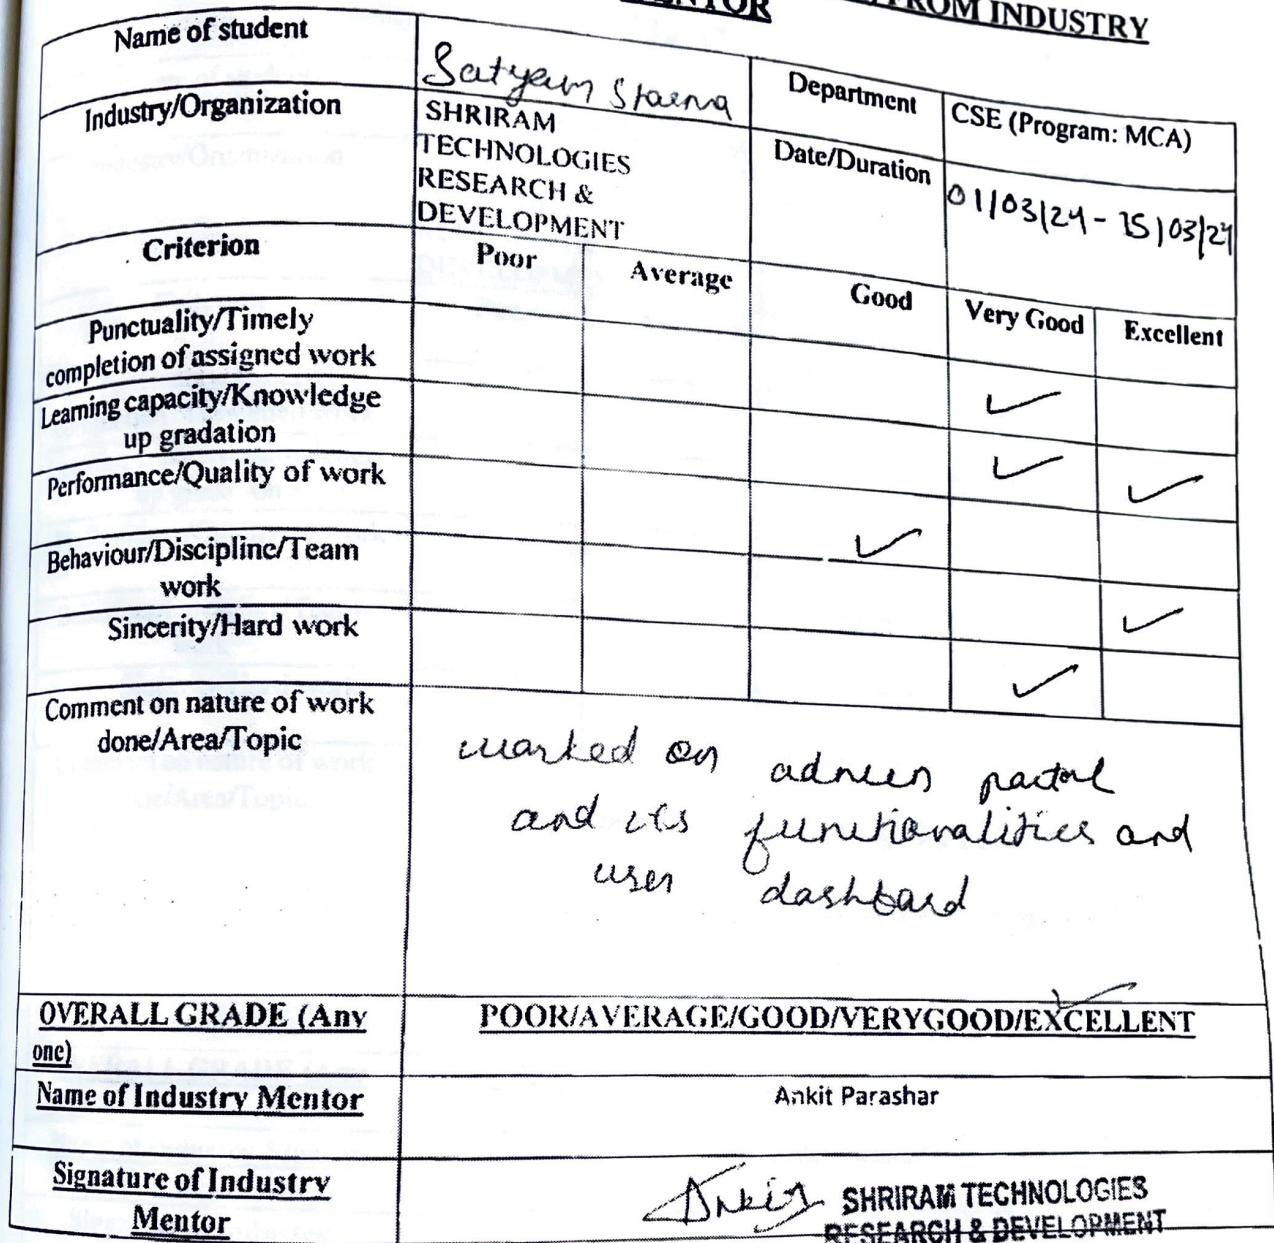 FROM INDUSTRY
MENTOR
Name of student
Satyam
Department
CSE (Program: MCA)
Industry/Organization
SHRIRAM
TECHNOLOGIES
RESEARCH &
DEVELOPMENT
Date/Duration
01/03/24 - 15/03/24
Criterion
Poor
Average
Good
Very Good
Excellent
Punctuality/Timely
completion of assigned work
Learning capacity/Knowledge
up gradation
Performance/Quality of work
Behaviour/Discipline/Team
work
Sincerity/Hard work
Comment on nature of work
done/Area/Topic
worked on admin portal
and its functionalities and
user dashboard
OVERALL GRADE (Any
one)
POOR/AVERAGE/GOOD/VERYGOOD/EXCELLENT
Name of Industry Mentor
Ankit Parashar
Signature of Industry
Mentor
Ankit
SHRIRAM TECHNOLOGIES
RESEARCH & DEVELOPMENT